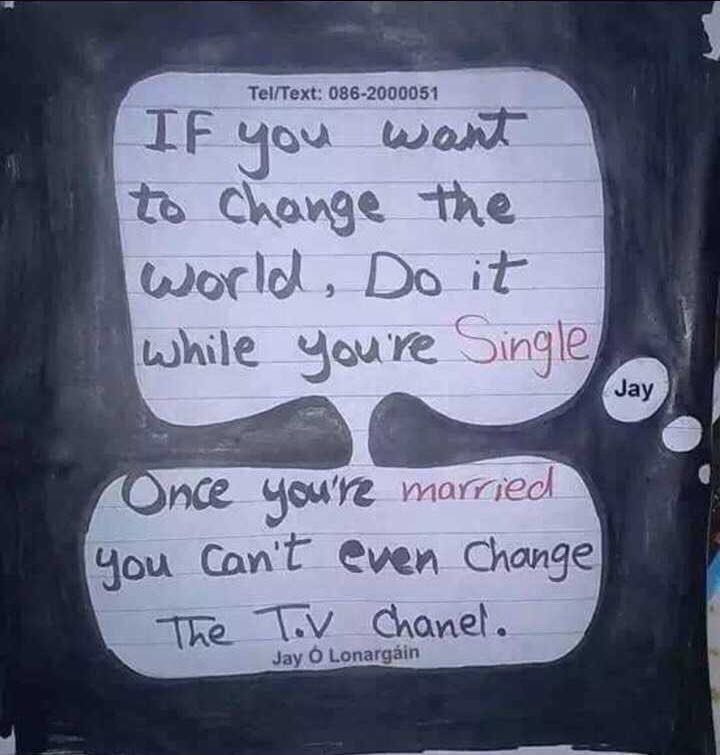 Tel/Text: 086-2000051
IF you want
to change the
world, Do it
while you're Single
Jay
Once you're married
you can't even change
The T.V chanel.
Jay Ó Lonargáin